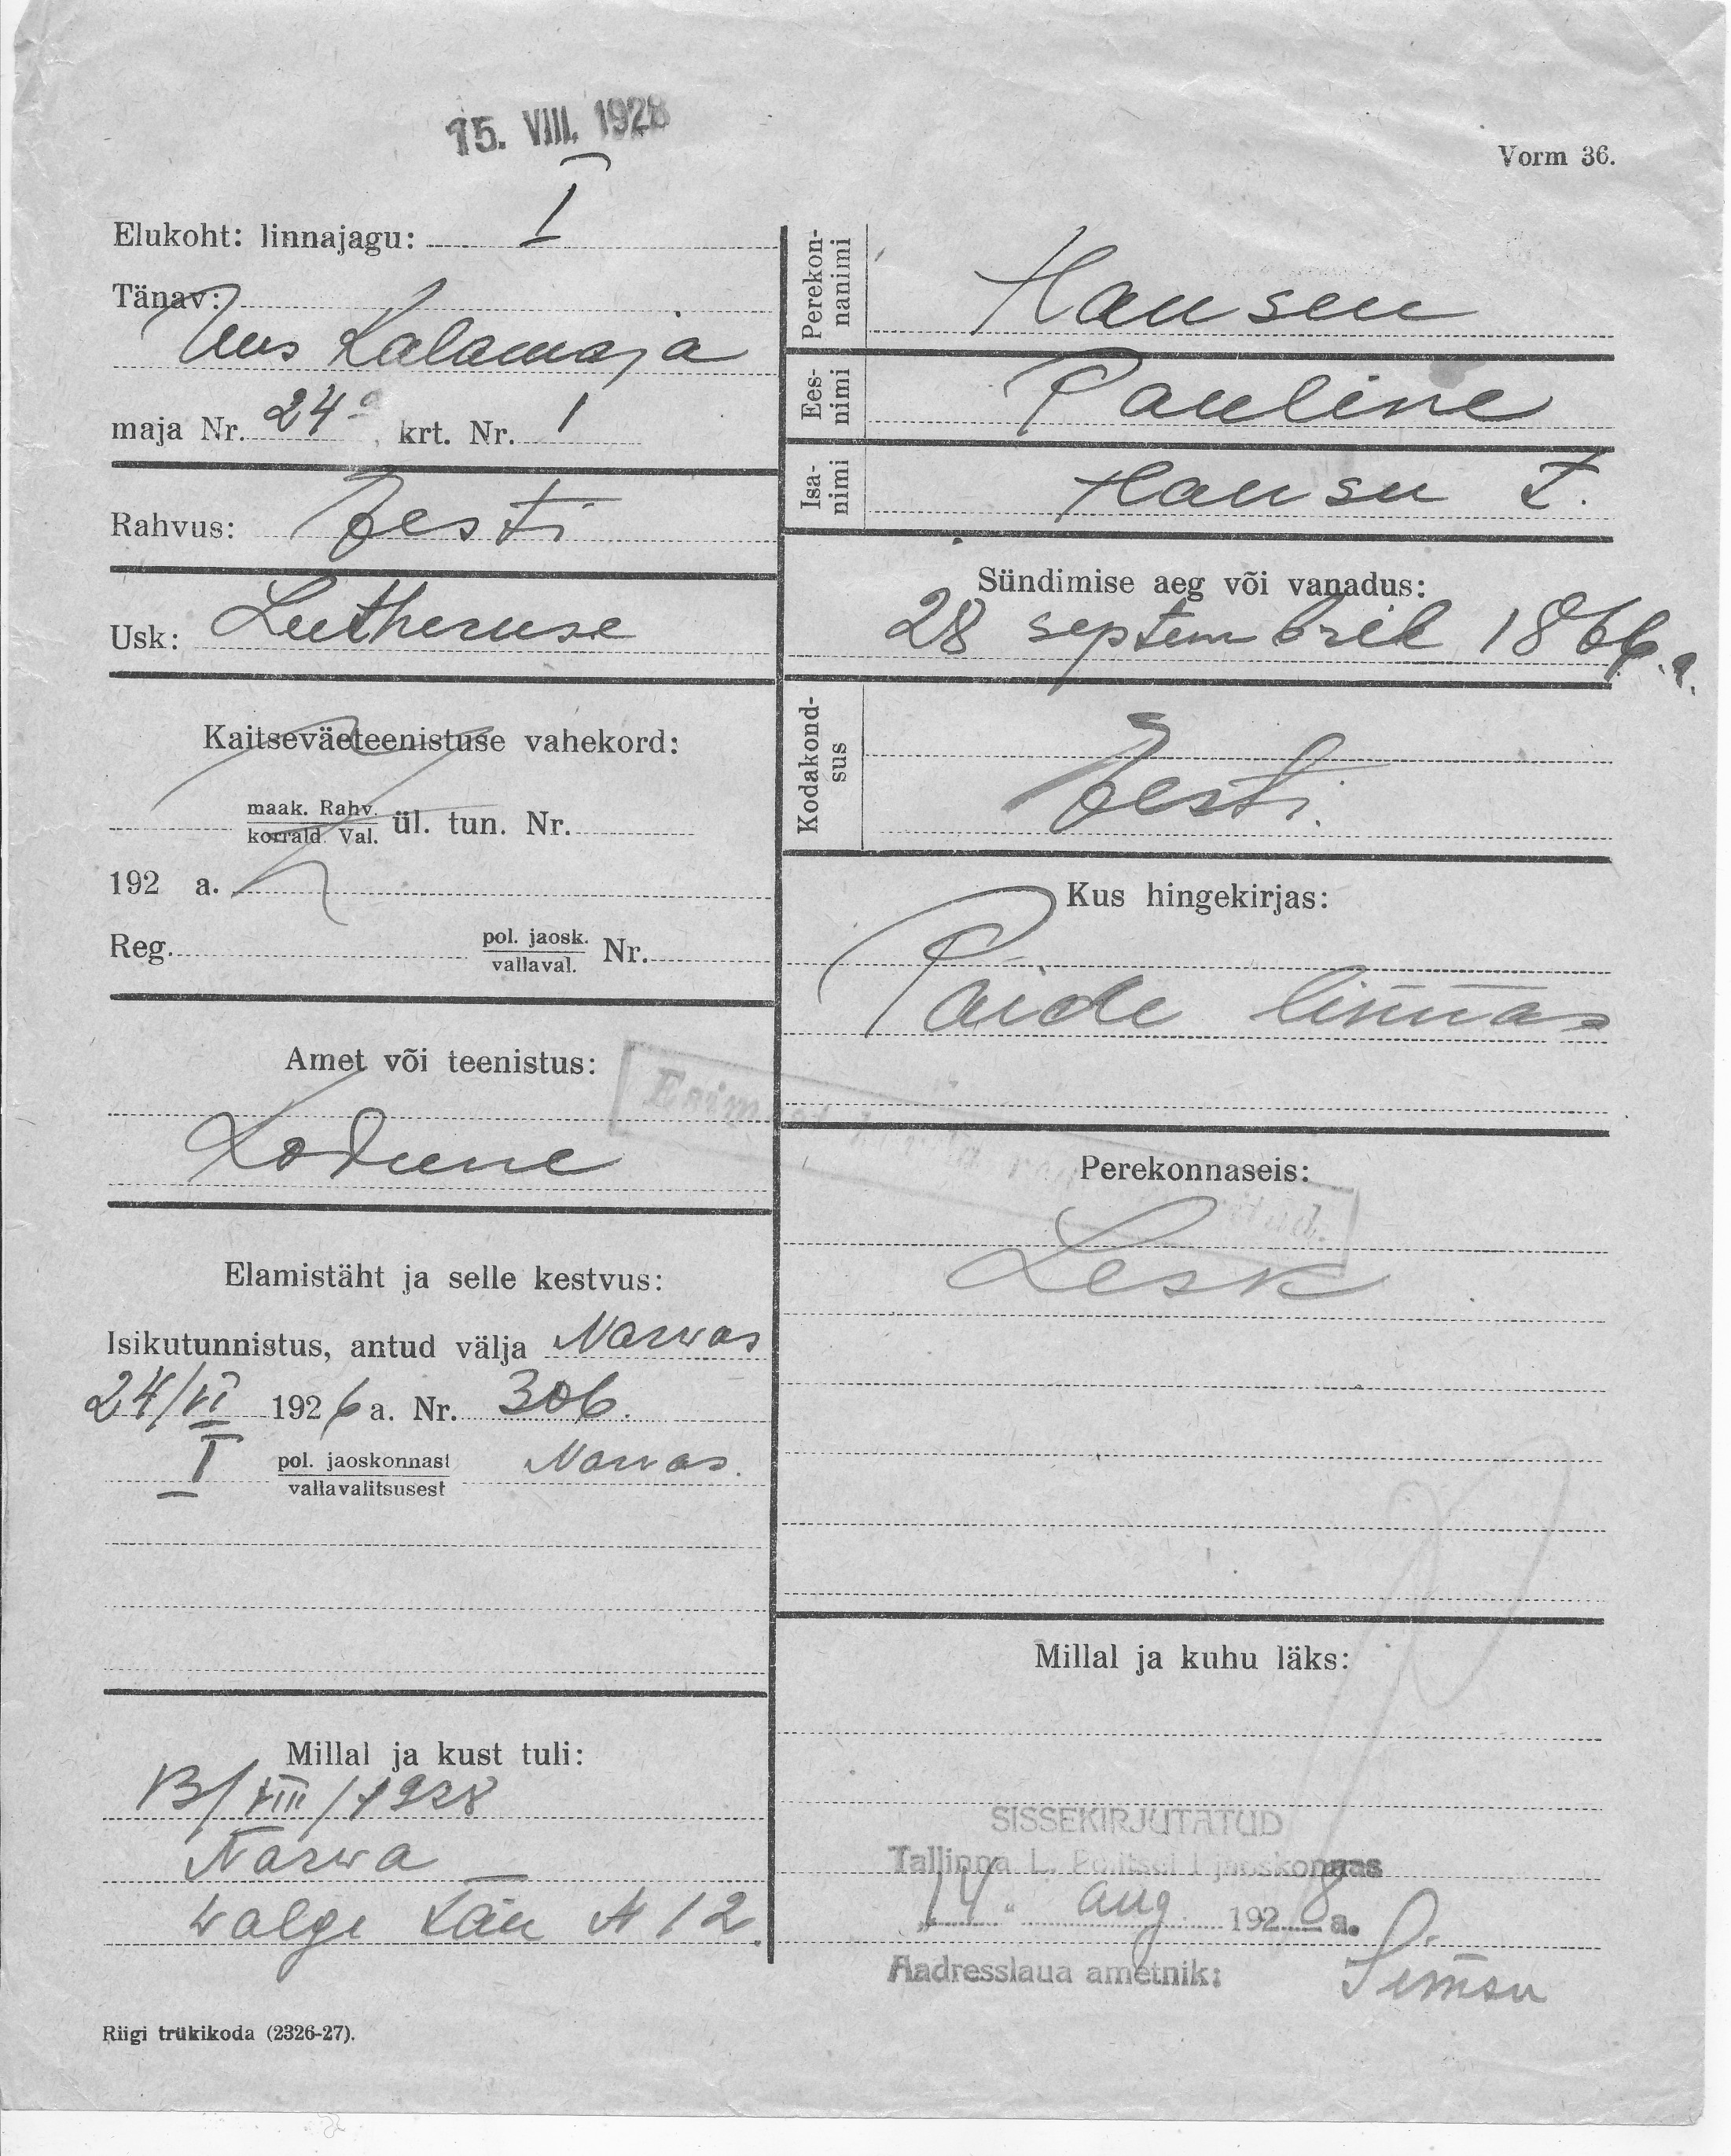 15. VIII. 1928
Vorm 36.
Elukoht: linnajagu: I
Tänav:
Uus Kalamaja
maja Nr. 24a, krt. Nr. 1
Rahvus: Eesti
Usk: Lutheruse
Kaitseväeteenistuse vahekord:
maak. Rahv.
korrald. Val. ül. tun. Nr.
192 a.
Reg. pol. jaosk.
vallaval. Nr.
Amet või teenistus:
Kodune
Elamistäht ja selle kestvus:
Isikutunnistus, antud välja Narwas
24/VI 1926 a. Nr. 306.
I pol. jaoskonnast
vallavalitsusest Narvas.
Millal ja kust tuli:
13/VIII/1928
Narwa
Walge tän N 12.
Riigi trükikoda (2326-27).
Perekonnanimi Hansen
Eesnimi Pauline
Isanimi Hansu t.
Sündimise aeg või vanadus:
28 septembril 1866.a.
Kodakondsus
Eesti.
Kus hingekirjas:
Paide linnas
Perekonnaseis:
Lesk
Millal ja kuhu läks:
SISSEKIRJUTATUD
Tallinna L. Politsei I jaoskonnas
"14" aug 1928 a.
Aadresslaua ametnik: